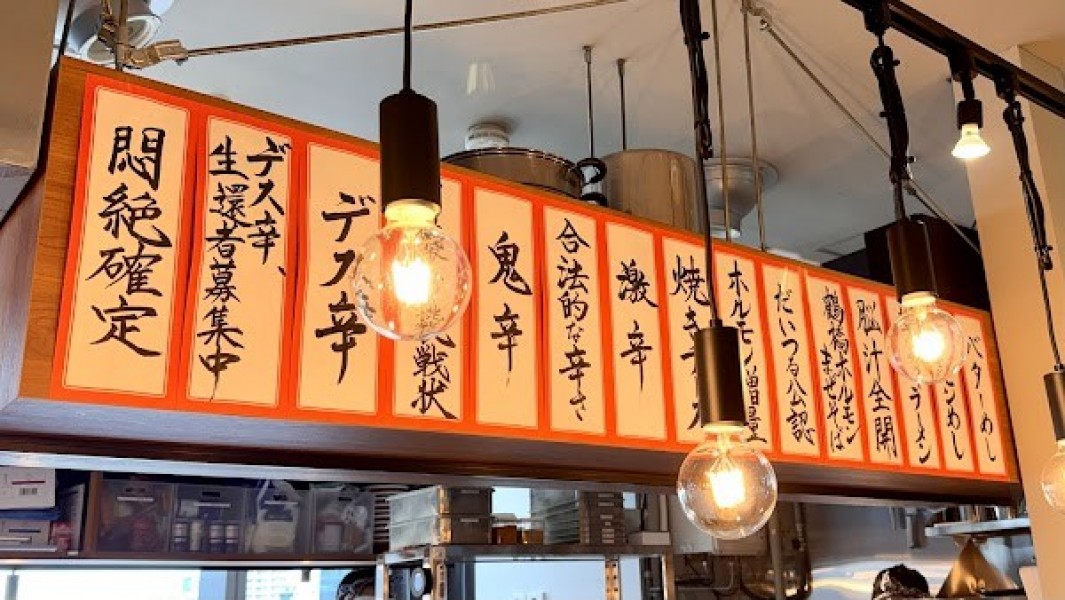 バターめし
めし
ラーメン
脳汁全開
鶴橋ホルモン
まぜそば
だいつる公認
ホルモン増量
焼き
激辛
合法的な辛さ
鬼辛
戦状
デス辛
デス辛、
生還者募集中
悶絶確定